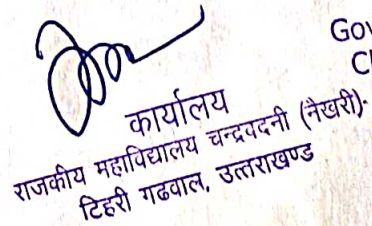 Gov
Cl
कार्यालय
राजकीय महाविद्यालय चन्द्रवदनी (नैखरी)-
टिहरी गढवाल, उत्तराखण्ड